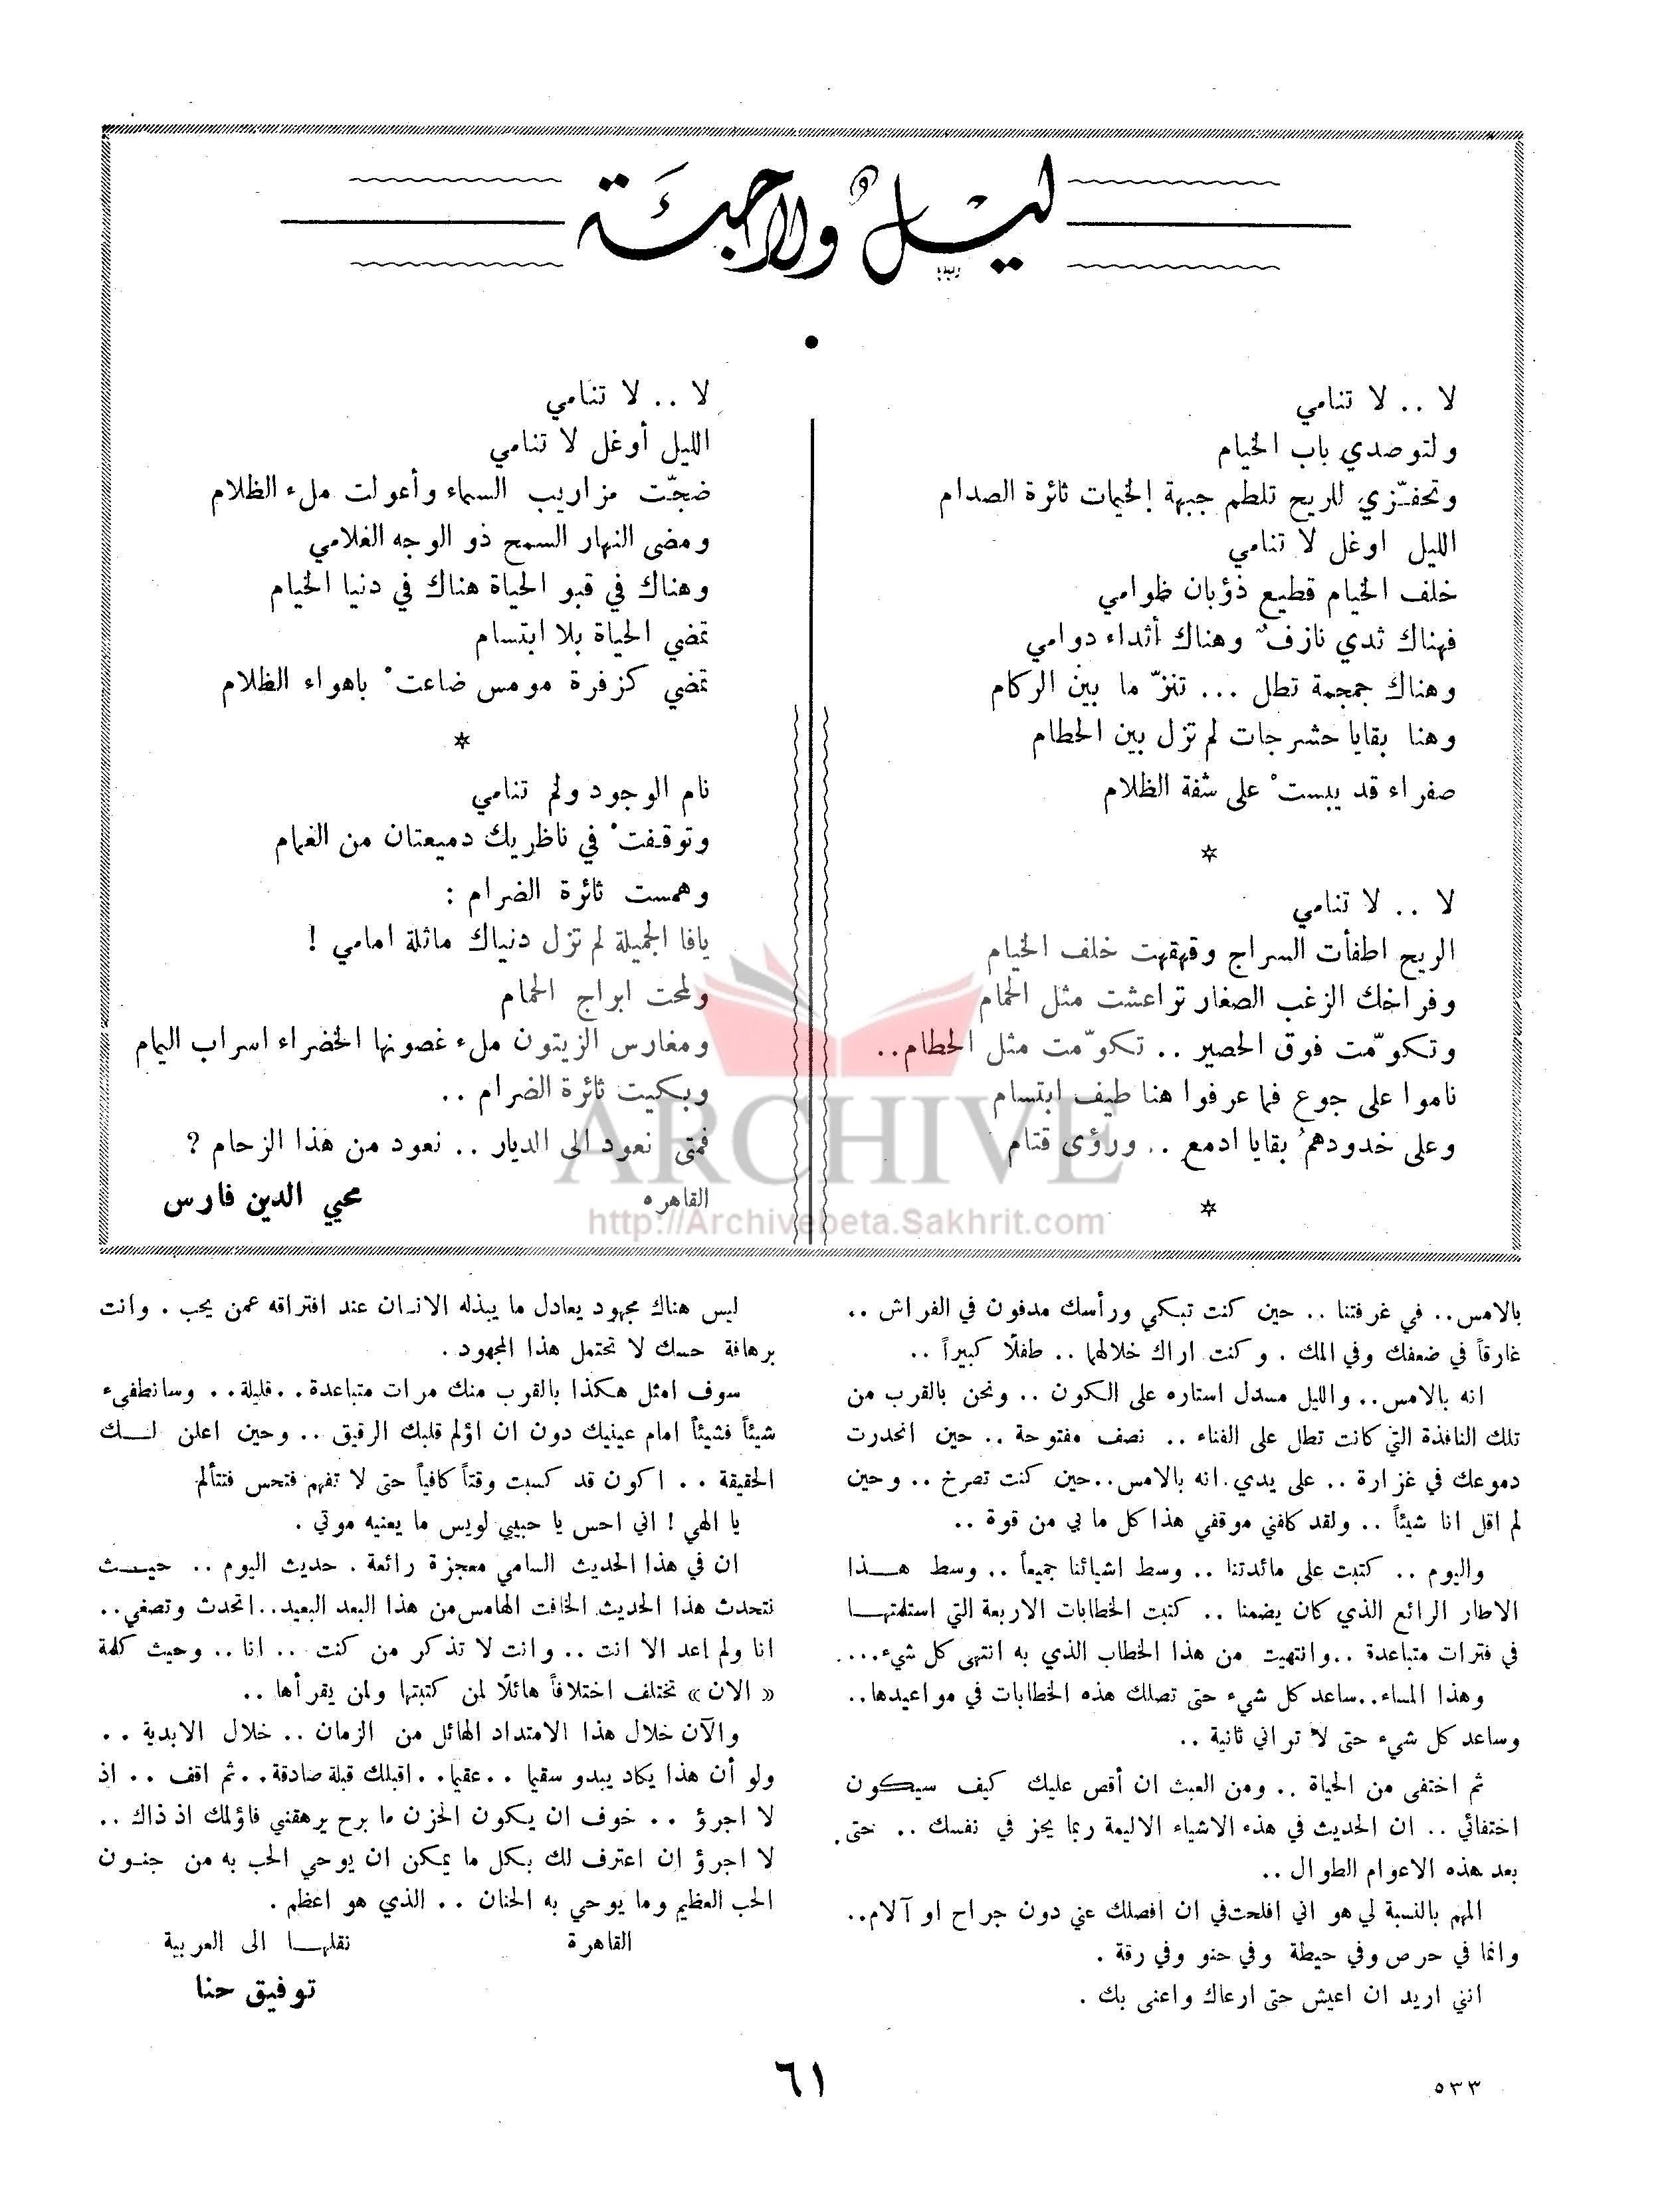 ليل ولاجئة
لا .. لا تنامي
ولتوصدي باب الخيام
وتحفّزي للريح تلطم جبهة الخيمات ثائرة الصدام
الليل اوغل لا تنامي
خلف الخيام قطيع ذؤبان ظوامي
فهناك ثدي نازفٌ وهناك أثداء دوامي
وهناك جمجمة تطل ... تنزّ ما بين الركام
وهنا بقايا حشرجات لم تزل بين الحطام
صفراء قد يبستْ على شفة الظلام
*
لا .. لا تنامي
الريح اطفأت السراج وقهقهت خلف الخيام
وفراخك الزغب الصغار تراعشت مثل الحمام
وتكوّمت فوق الحصير .. تكوّمت مثل الحطام..
ناموا على جوع فما عرفوا هنا طيف ابتسام
وعلى خدودهمُ بقايا ادمع .. ورؤى قتام
*
لا .. لا تنامي
الليل أوغل لا تنامي
ضجّت مزاريب السماء وأعولت ملء الظلام
ومضى النهار السمح ذو الوجه الغلامي
وهناك في قبو الحياة هناك في دنيا الخيام
تمضي الحياة بلا ابتسام
تمضي كزفرة مومس ضاعتْ باهواء الظلام
*
نام الوجود ولم تنامي
وتوقفتْ في ناظريك دميعتان من الغمام
وهمست ثائرة الضرام :
يافا الجميلة لم تزل دنياك ماثلة امامي !
ولمحت ابراج الحمام
ومغارس الزيتون ملء غصونها الخضراء اسراب اليمام
وبكيت ثائرة الضرام ..
فمتى نعود الى الديار .. نعود من هذا الزحام ؟
القاهره محيي الدين فارس
ARCHIVE
http://Archivebeta.Sakhrit.com
بالامس.. في غرفتنا .. حين كنت تبكي ورأسك مدفون في الفراش ..
غارقاً في ضعفك وفي المك . وكنت اراك خلالهما .. طفلًا كبيراً ..
انه بالامس.. والليل مسدل استاره على الكون .. ونحن بالقرب من
تلك النافذة التي كانت تطل على الفناء .. نصف مفتوحة .. حين انحدرت
دموعك في غزارة .. على يدي. انه بالامس..حين كنت تصرخ .. وحين
لم اقل انا شيئاً .. ولقد كلفني موقفي هذا كل ما بي من قوة ..
واليوم .. كتبت على مائدتنا .. وسط اشيائنا جميعاً .. وسط هذا
الاطار الرائع الذي كان يضمنا .. كتبت الخطابات الاربعة التي استلمتها
في فترات متباعدة ..وانتهيت من هذا الخطاب الذي به انتهى كل شيء....
وهذا المساء..ساعد كل شيء حتى تصلك هذه الخطابات في مواعيدها..
وساعد كل شيء حتى لا تراني ثانية ..
ثم اختفى من الحياة .. ومن العبث ان أقص عليك كيف سيكون
اختفائي .. ان الحديث في هذه الاشياء الاليمة ربما يحز في نفسك .. حتى
بعد هذه الاعوام الطوال ..
المهم بالنسبة لي هو اني افلحت في ان افصلك عني دون جراح او آلام..
وانما في حرص وفي حيطة وفي حنو وفي رقة .
انني اريد ان اعيش حتى ارعاك واعنى بك .
ليس هناك مجهود يعادل ما يبذله الانسان عند افتراقه عمن يحب . وانت
برهافة حسك لا تحتمل هذا المجهود .
سوف امثل هكذا بالقرب منك مرات متباعدة..قليلة.. وسانطفىء
شيئاً فشيئاً امام عينيك دون ان اؤلم قلبك الرقيق .. وحين اعلن لك
الحقيقة .. اكون قد كسبت وقتاً كافياً حتى لا تفهم فتحس فتتألم
يا الهي ! اني احس يا حبيبي لويس ما يعنيه موتي .
ان في هذا الحديث السامي معجزة رائعة . حديث اليوم .. حيث
نتحدث هذا الحديث الخافت الهامس من هذا البعد البعيد..اتحدث وتصغي..
انا ولم اعد الا انت .. وانت لا تذكر من كنت .. انا.. وحيث كلمة
« الان » تختلف اختلافاً هائلًا لمن كتبتها ولمن يقرأها ..
والآن خلال هذا الامتداد الهائل من الزمان .. خلال الابدية ..
ولو أن هذا يكاد يبدو سقيما ..عقيما..اقبلك قبلة صادقة..ثم اقف .. اذ
لا اجرؤ .. خوف ان يكون الحزن ما برح يرهقني فاؤلمك اذ ذاك ..
لا اجرؤ ان اعترف لك بكل ما يمكن ان يوحي الحب به من جنون
الحب العظيم وما يوحي به الحنان .. الذي هو اعظم .
القاهرة نقلها الى العربية
توفيق حنا
٦١
٥٣٣